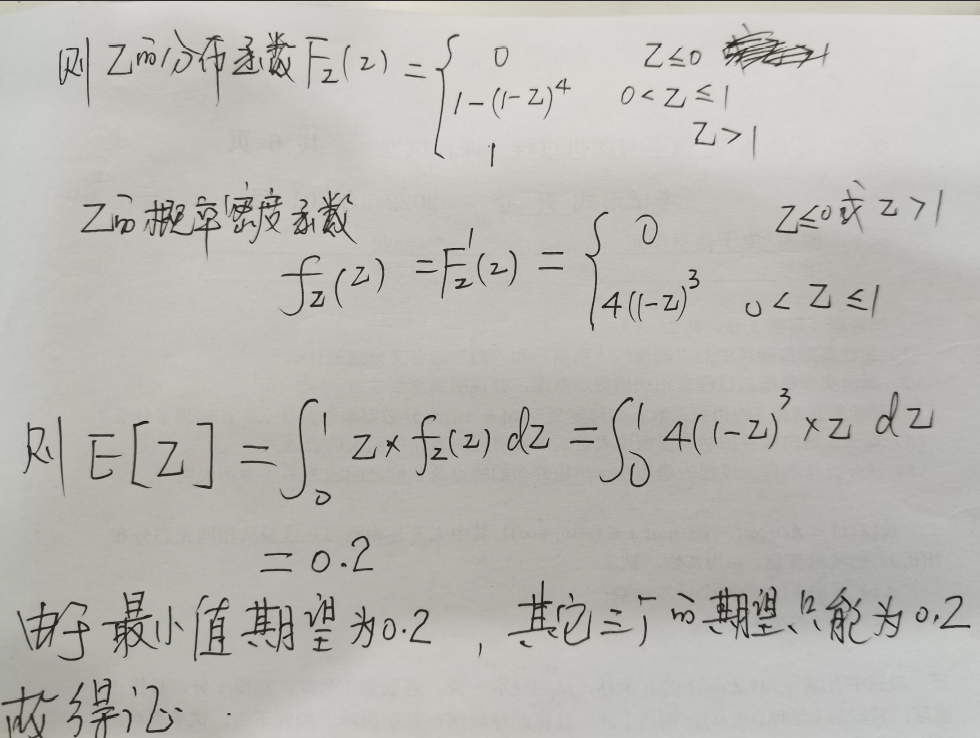 则 Z的分布函数 F_Z(z) = { 0  Z≤0
1-(1-Z)^4  0<Z≤1
1  Z>1
Z的概率密度函数
f_Z(Z) = F'_Z(z) = { 0  Z≤0或Z>1
4(1-Z)^3  0<Z≤1
则 E[Z] = ∫_0^1 Z×f_Z(z) dz = ∫_0^1 4(1-Z)^3×Z dz
= 0.2
由于最小值期望为0.2，其它三个的期望只能为0.2
故得证.